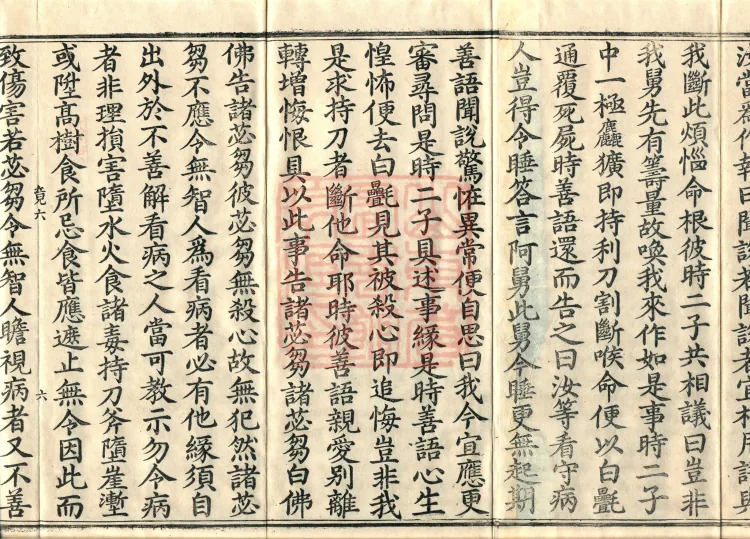 我斷此煩惱命根彼時二子共相議曰豈非
我舅先有籌量故喚我來作如是事時二子
中一極麤獷即持利刀割斷喉命便以白氎
通覆死屍時善語還而告之曰汝等看守病
人豈得令睡答言阿舅此舅今睡更無起期
善語聞說驚怪異常便自思曰我今宜應更
審尋問是時二子具述事緣是時善語心生
惶怖便去白氎見其被殺心即追悔豈非我
是求持刀者斷他命耶時彼善語親愛別離
轉增悔恨具以此事告諸苾芻諸苾芻白佛
佛告諸苾芻彼苾芻無殺心故無犯然諸苾
芻不應令無智人爲看病者必有他緣須自
出外於不善解看病之人當可教示勿令病
者非理損害墮水火食諸毒持刀斧墮崖壍
或陞高樹食所忌食皆應遮止無令因此而
竟六 六
致傷害若苾芻令無智人瞻視病者又不善